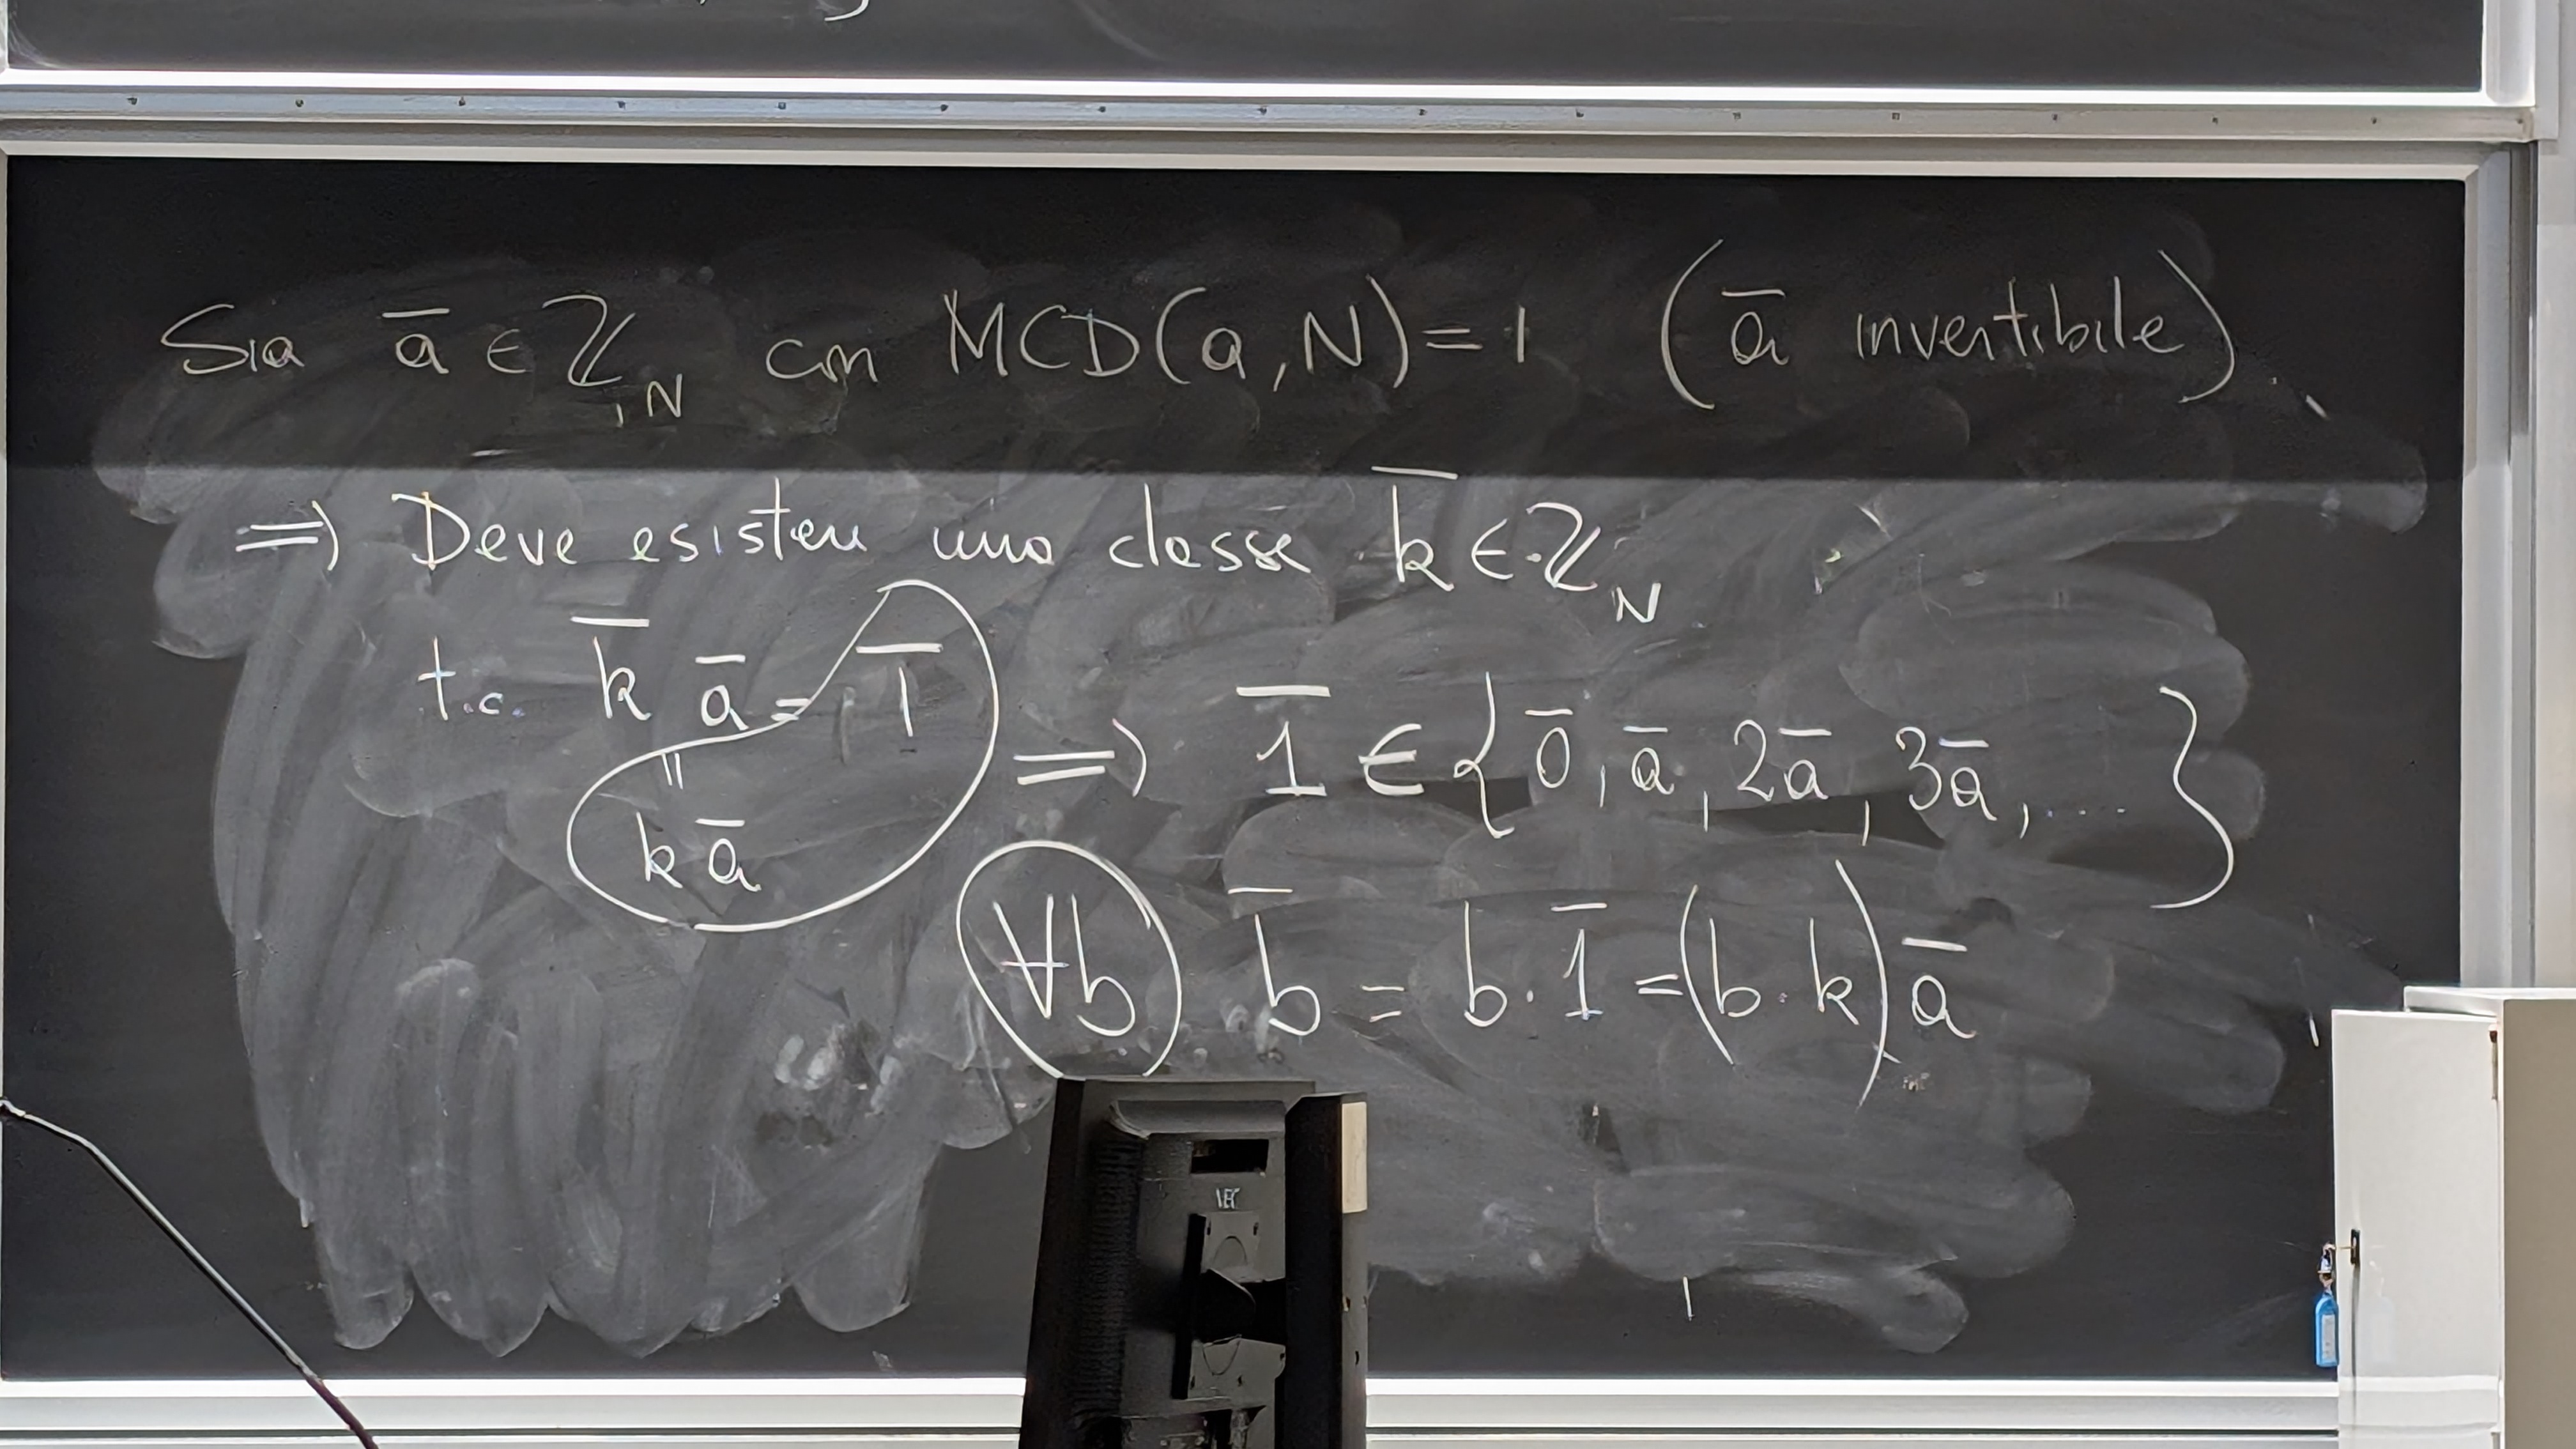 Sia a̅ ∈ ℤ_N con MCD(a, N) = 1 (a̅ invertibile)
⇒ Deve esistere una classe k̅ ∈ ℤ_N
t.c. k̅ a̅ = 1̅
"
k a̅
⇒ 1̅ ∈ { 0̅, a̅, 2a̅, 3a̅, ... }
∀b b̅ = b · 1̅ = (b · k) a̅